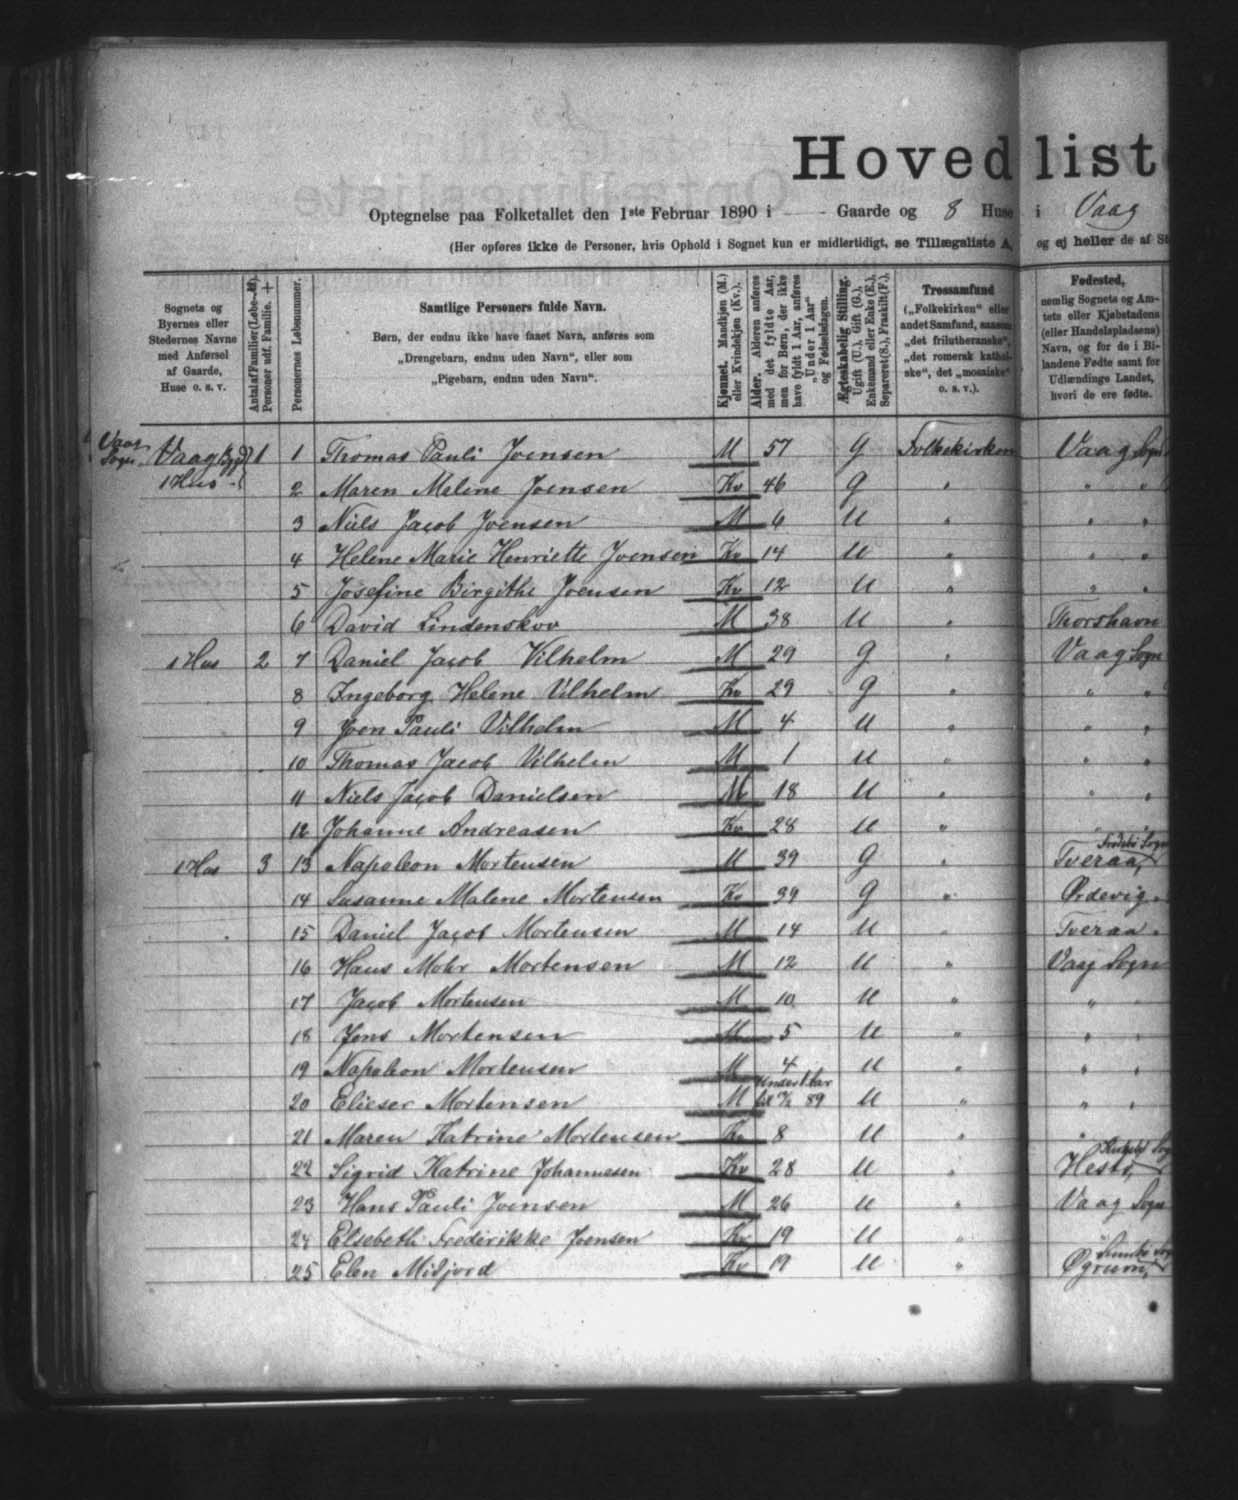 Hovedlist
Optegnelse paa Folketallet den 1ste Februar 1890 i — Gaarde og 8 Huse i Vaag
(Her opføres ikke de Personer, hvis Ophold i Sognet kun er midlertidigt, se Tillægsliste A, og ej heller de af St
Sognets og Byernes eller Stedernes Navne med Anførsel af Gaarde, Huse o. s. v.
Antal af Familier (Løbe-№). Personer udf. Familie. +
Personernes Løbenummer.
Samtlige Personers fulde Navn.
Børn, der endnu ikke have faaet Navn, anføres som
„Drengebarn, endnu uden Navn“, eller som
„Pigebarn, endnu uden Navn“.
Kjønnet. Mandkjøn (M.) eller Kvindekjøn (Kv.).
Alder. Alderen anføres med det fyldte Aar, men for Børn, der ikke have fyldt 1 Aar, anføres „Under 1 Aar“ og Fødselsdagen.
Ægteskabelig Stilling. Ugift (U.), Gift (G.), Enkemand eller Enke (E.), Separeret (S.), Fraskilt (F.).
Trossamfund („Folkekirken“ eller andet Samfund, saasom „det frilutheranske“, „det romersk katholske“, det „mosaiske“ o. s. v.).
Fødested, nemlig Sognets og Amtets eller Kjøbstadens (eller Handelspladsens) Navn, og for de i Bilandene Fødte samt for Udlændinge Landet, hvori de ere fødte.
Vaag Sogn Vaag Bygd 1 1 Thomas Pauli Joensen M 57 G Folkekirken Vaag Sogn
1 Hus 2 Maren Meline Joensen Kv 46 G " " "
3 Niels Jacob Joensen M 6 U " " "
4 Helene Marie Henriette Joensen Kv 14 U " " "
5 Josefine Birgithe Joensen Kv 12 U " " "
6 David Lindenskov M 38 U " Thorshavn
1 Hus 2 7 Daniel Jacob Vilhelm M 29 G " Vaag Sogn
8 Ingeborg Helene Vilhelm Kv 29 G " " "
9 Joen Pauli Vilhelm M 4 U " " "
10 Thomas Jacob Vilhelm M 1 U " " "
11 Niels Jacob Danielsen M 18 U " " "
12 Johanne Andreasen Kv 28 U " " "
1 Hus 3 13 Napoleon Mortensen M 39 G " Tveraa, Frodebø Sogn
14 Susanne Malene Mortensen Kv 39 G " Ørdevig "
15 Daniel Jacob Mortensen M 14 U " Tveraa "
16 Hans Mohr Mortensen M 12 U " Vaag Sogn
17 Jacob Mortensen M 10 U " " "
18 Jens Mortensen M 5 U " " "
19 Napoleon Mortensen M 4 U " " "
20 Elieser Mortensen M under 1 Aar 89 U " " "
21 Maren Katrine Mortensen Kv 8 U " "
22 Sigrid Katrine Johannesen Kv 28 U " Hestø, Sogn
23 Hans Pauli Joensen M 26 U " Vaag Sogn
24 Elsebeth Frederikke Joensen Kv 19 U " "
25 Elen Midjord Kv 19 U " Øgrum, Sumbø Sogn